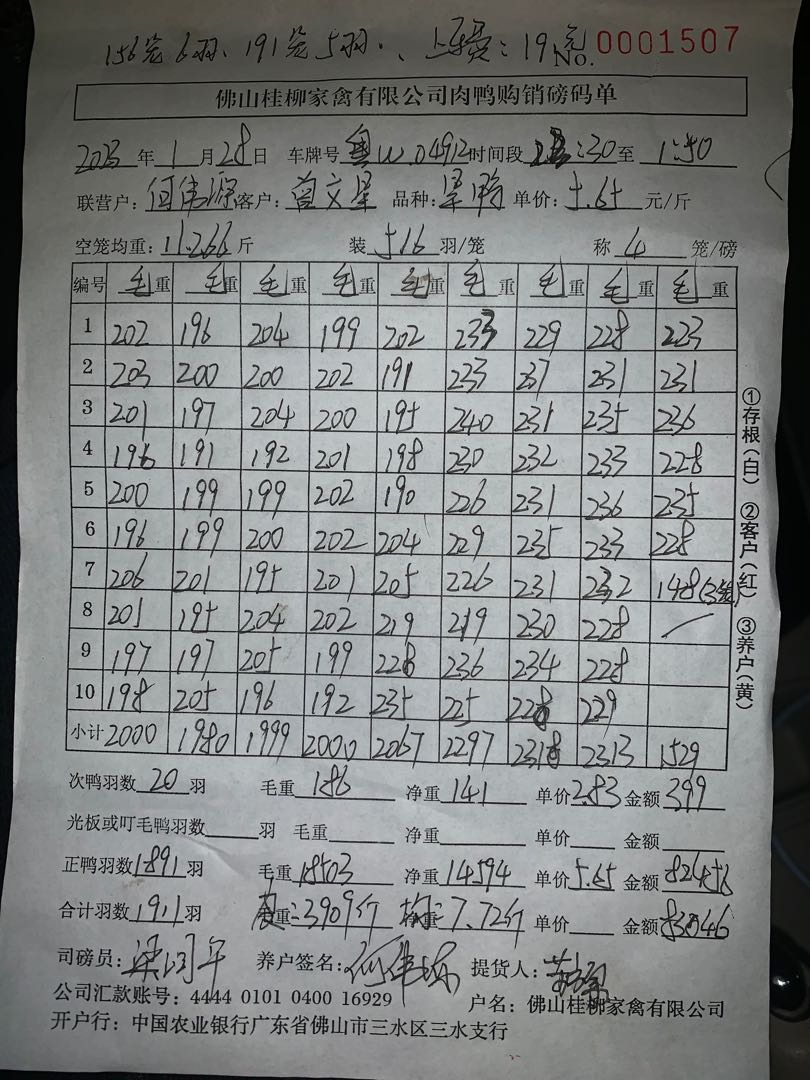 156笼6羽、191笼5羽、上车费:19元 No.0001507
佛山桂柳家禽有限公司肉鸭购销磅码单
2023年1月28日 车牌号 粤W.04912 时间段 :30至1:50
联营户:何伟源 客户:曾文星 品种: 单价:5.65元/斤
空笼均重:11.266斤 装5/6羽/笼 称4笼/磅
编号 毛重 毛重 毛重 毛重 毛重 毛重 毛重 毛重 毛重
1 202 196 204 199 202 233 229 228 223
2 203 200 200 202 191 233 237 231 231
3 201 197 204 200 195 240 231 235 236
4 196 191 192 201 198 230 232 233 228
5 200 199 199 202 190 226 231 236 235
6 196 199 200 202 204 229 235 233 228
7 206 201 195 201 205 226 231 232 148(3笼)
8 201 195 204 202 219 219 230 228 /
9 197 197 205 199 228 236 234 228
10 198 205 196 192 235 225 228 229
小计 2000 1980 1999 2000 2067 2297 2318 2313 1529
次鸭羽数20羽 毛重186 净重141 单价2.83 金额399
光板或叮毛鸭羽数 羽 毛重 净重 单价 金额
正鸭羽数1891羽 毛重18503 净重14594 单价5.65 金额82456
合计羽数1911羽 皮重:3909斤 均重:7.72斤 单价 金额83046
司磅员:梁润年 养户签名:何伟源 提货人:
公司汇款账号:4444 0101 0400 16929 户名:佛山桂柳家禽有限公司
开户行:中国农业银行广东省佛山市三水区三水支行
①存根(白) ②客户(红) ③养户(黄)